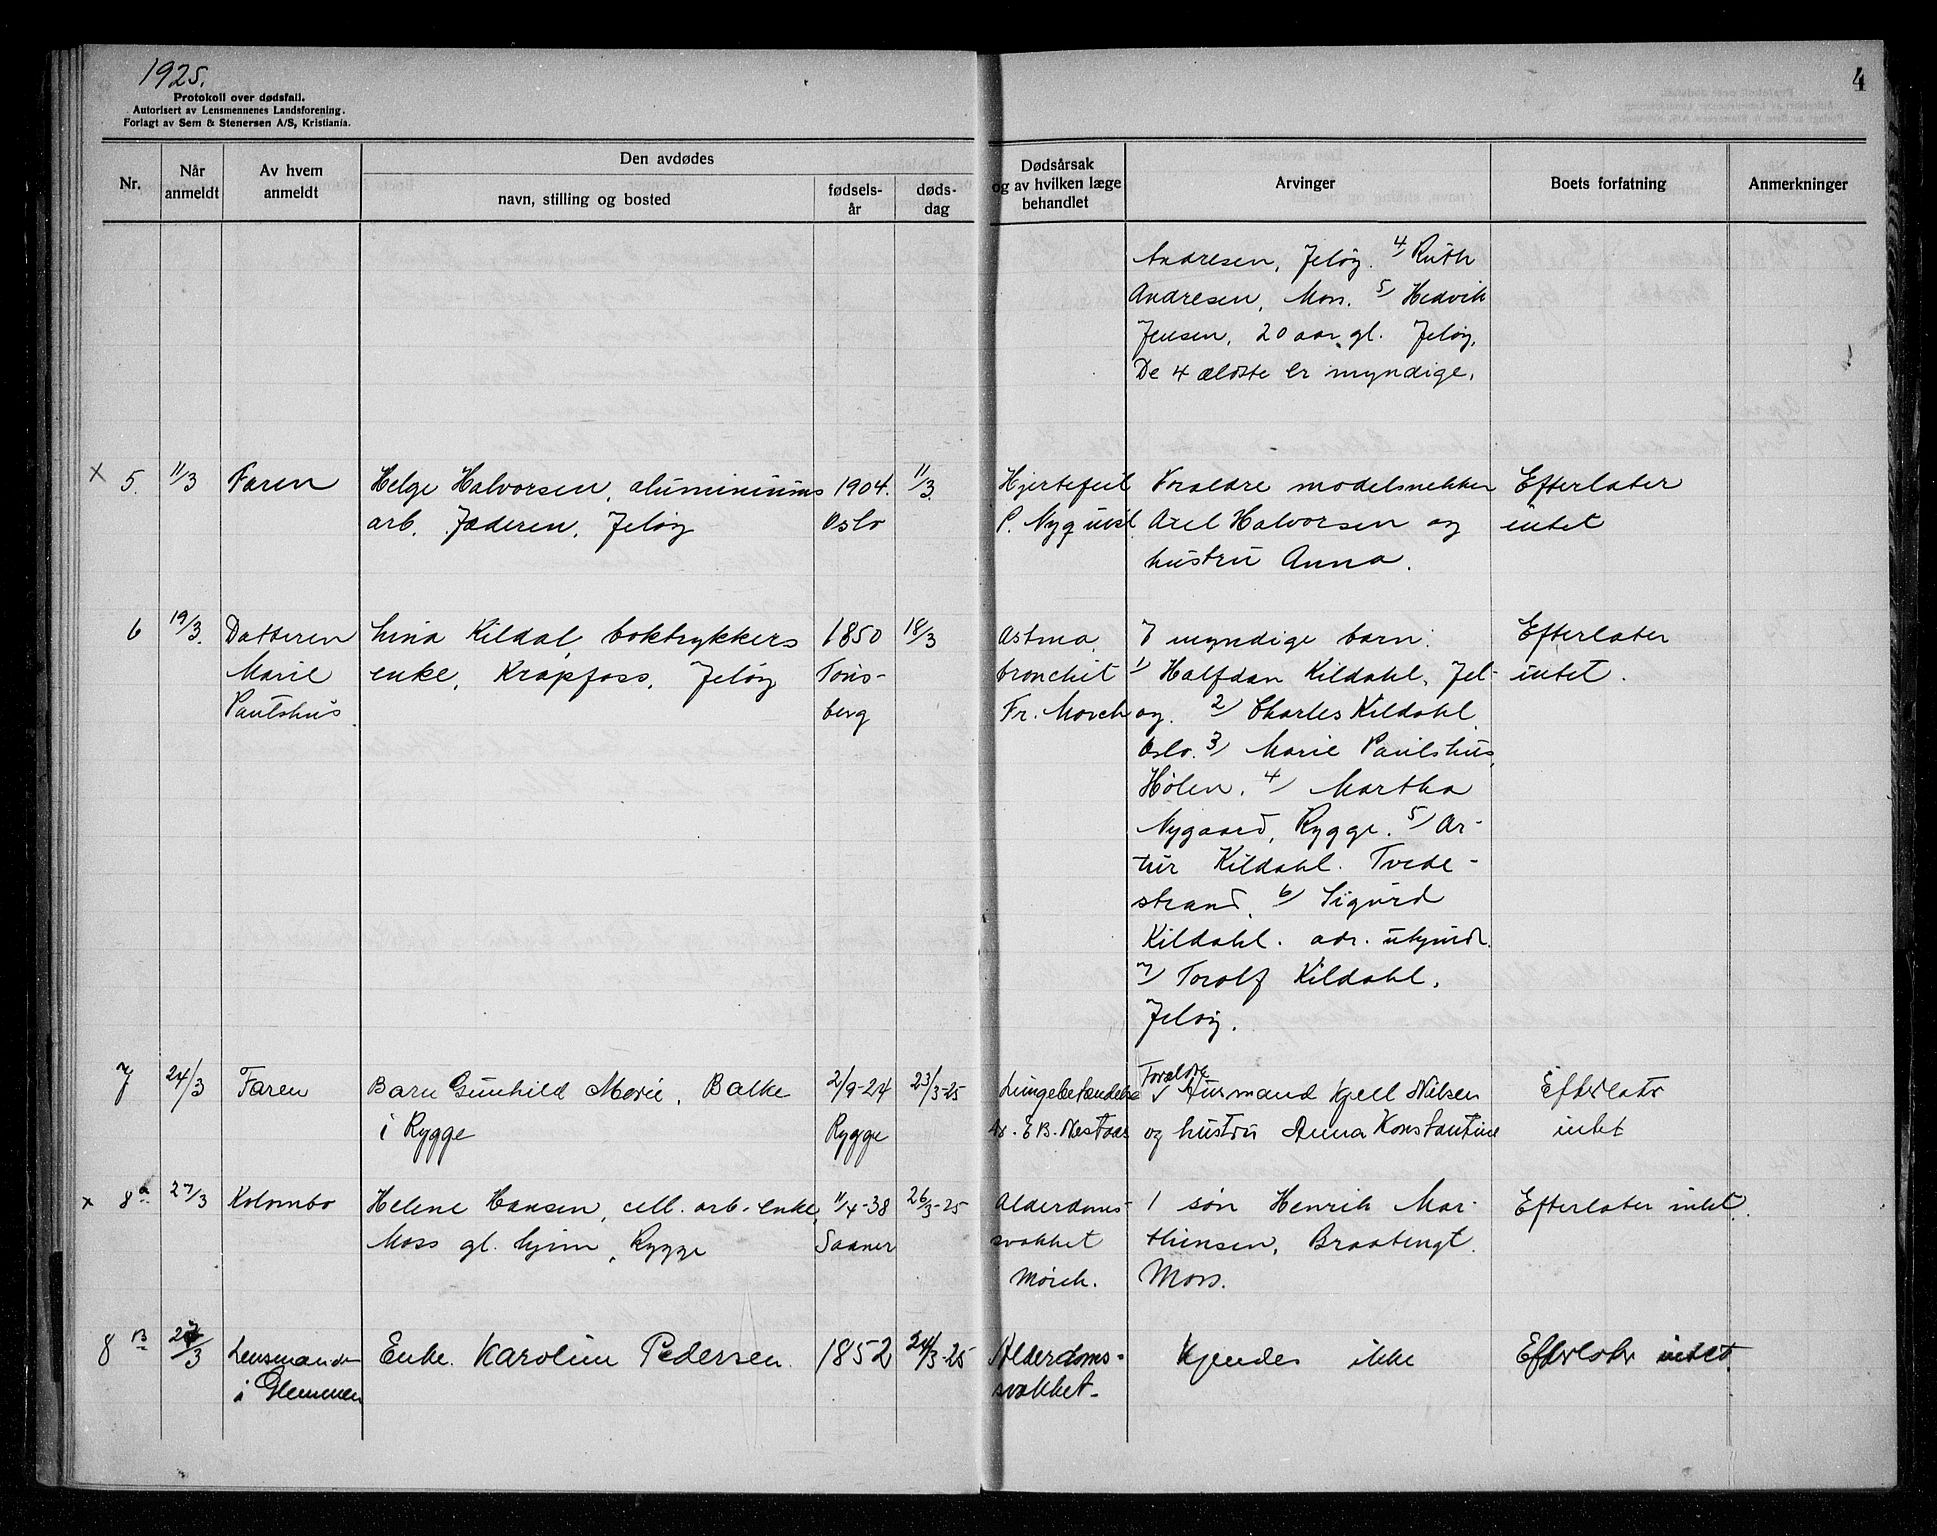 1925.
Protokoll over dødsfall.
Autorisert av Lensmennenes Landsforening.
Forlagt av Sem & Stenersen A/S, Kristiania.
4
Nr.
Når anmeldt
Av hvem anmeldt
Den avdødes
navn, stilling og bosted
fødsels-år
døds-dag
Dødsårsak og av hvilken læge behandlet
Arvinger
Boets forfatning
Anmerkninger
Andresen, Jeløy. 4) Ruth
Andresen, Moss. 5) Hedvik
Jensen, 20 aar gl. Jeløy.
De 4 ældste er myndige.
x 5. 11/3 Faren Helge Halvorsen, aluminiums 1904. 11/3 Hjertefeil Foraldre modelsnekker Efterlater
arb. Jæderen, Jeløy Oslo P. Nyquist Axel Halvorsen og intet
hustru Anna.
6 19/3. Datteren Lina Kildal, boktrykkers 1850 18/3 Astma, 7 myndige barn: Efterlater
Marie enke, Krapfoss, Jeløy Tøns- bronchit 1) Halfdan Kildahl, Jel- intet.
Paulshus berg Fr. Morch øy. 2) Charles Kildahl
Oslo. 3) Marie Paulshus,
Hølen. 4) Martha
Nygaard, Rygge. 5) Ar-
tur Kildahl. Tvede-
strand. 6) Sigurd
Kildahl. adr. ukjendt.
7) Toralf Kildahl,
Jeløy.
7 24/3 Faren Barn Gunhild Marie, Balke 2/9-24 23/3-25 Lungebetændelse Forældre Furmand Kjell Nilsen Efterlatr
i Rygge Rygge Dr. E.B. Nestaas og hustru Anna Konstantine intet
x 8a 27/3 Kolombo Helene Hansen, cell. arb. enke, 11/4-38 26/3-25 Alderdoms- 1 søn Henrik Mar- Efterlater intet.
Moss gl. hjem, Rygge Saaner svakhet thinsen, Braatengt.
Mørch. Moss.
8B 27/3 Lensmanden Enke Karoline Pedersen. 1852 24/3-25 Alderdoms- Kjendes ikke Efterlatr intet
i Glemmen svakhet-